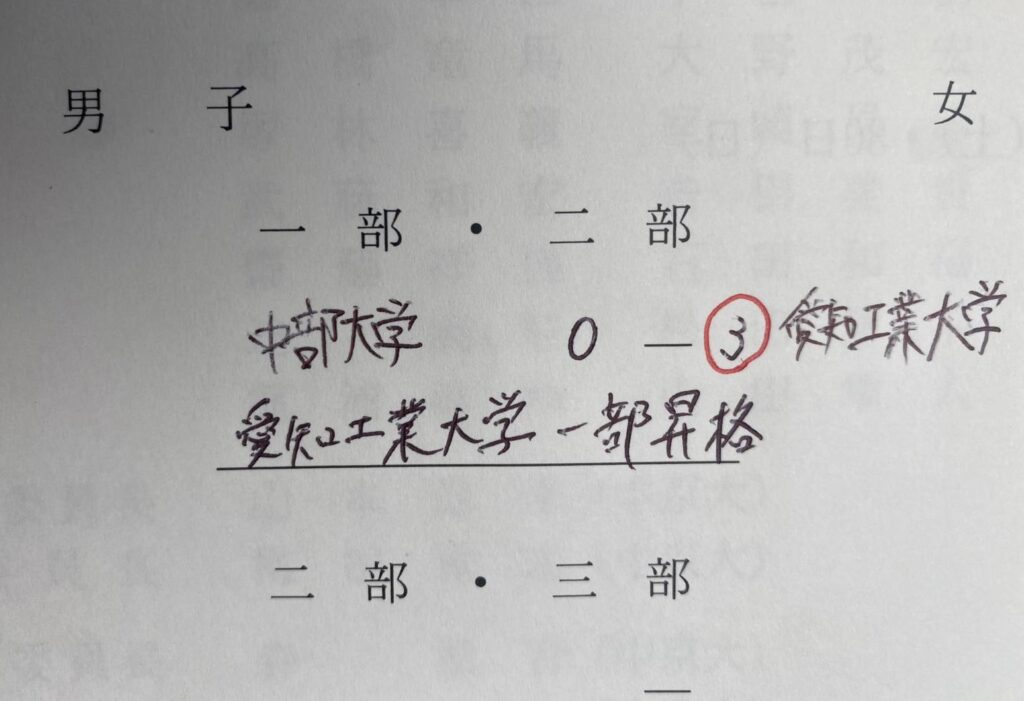 男子 女
一部・二部
中部大学 0 — 3 愛知工業大学
愛知工業大学一部昇格
二部・三部
—